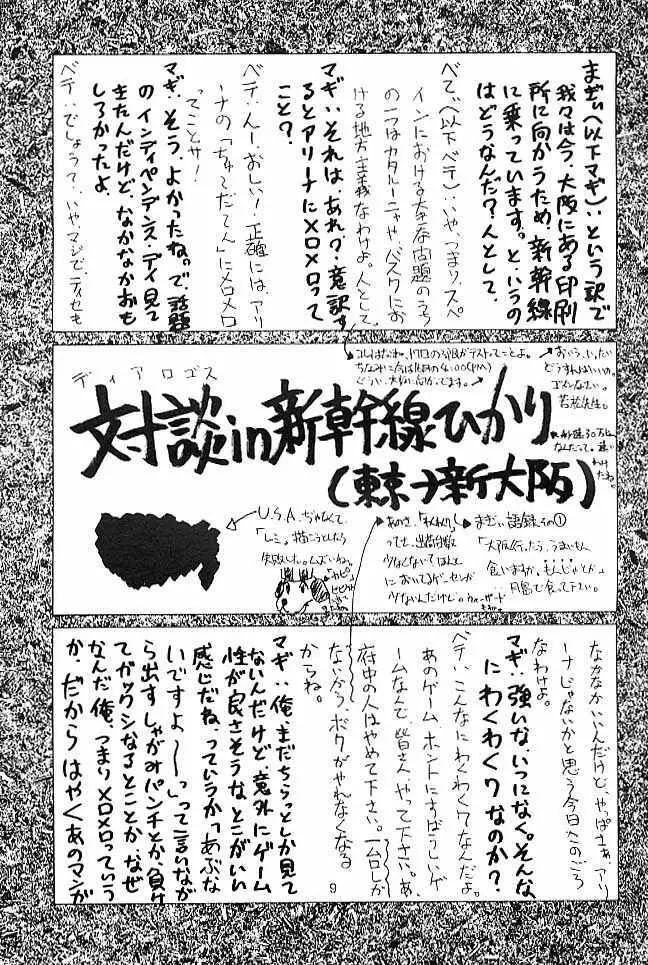 まぎぃ(以下マギ):という訳で
我々は今、大阪にある印刷
所に向かうため、新幹線
に乗っています。と、いうの
はどうなんだ?人として。
べてぃ(以下ベテ):いや、つまり、スペ
インにおける大きな問題のうち
の一つはカタルーニャや、バスクにお
ける地方主義なわけよ。人として。
マギ:それは、あれ?意訳す
るとアリーナにメロメロって
こと?
ベテ:んー、おしい!正確には、アリ
ーナの「ちゅーだてん」にメロメロ
ってことサ!
マギ:そう、よかったね。で、話題
のインディペンデンス・デイ見て
きたんだけど、なかなかおも
しろかったよ。
ベテ:でしょうて、いやマジで、
ディアロゴス
対談in新幹線ひかり
(東京→新大阪)
おいう、い、たい
どうすんばいいの。
ゴメンなさい。
若松先生。
U.S.A.ぢゃなくて、
「レミ」描こうとしたら
失敗した。ムズいねっ
あのさ、「わくわく7」
まぎぃ語録その①
「大阪行ったら、うまいもん
食いますか。もんじゃとか」
月島で食って下さい。
なかなかいいんだけど、やっぱさぁ、アリ
ーナじゃないかと思う今日このごろ
なわけよ。
マギ:強いな、いつになく。そんな
にわくわく7なのか?
ベテ:こんなにわくわく7なんだよ。
あのゲーム ホントにすばらしいゲ
ームなんで、皆さん、やって下さい。あ、
府中の人はやめて下さい。一台しか
ないから、ボクがやれなくなる
からね。
マギ:俺、まだちらっとしか見て
ないんだけど、意外にゲーム
性が良さそうな、とこがいい
感じだね。っていうか「あぶな
いですよ〜〜」って言いなが
ら出すしゃがみパンチとか、負け
てガックシなるとことか。なぜ
なんだ俺。つまりメロメロっていう
か、だからはやくあのマンガ
9